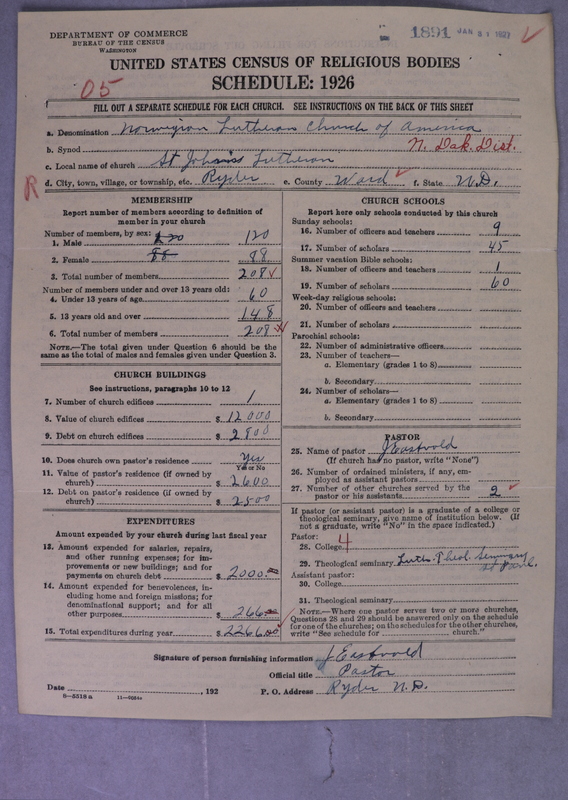 DEPARTMENT OF COMMERCE
BUREAU OF THE CENSUS
WASHINGTON
1891 JAN 31 1927
UNITED STATES CENSUS OF RELIGIOUS BODIES
SCHEDULE: 1926
05
FILL OUT A SEPARATE SCHEDULE FOR EACH CHURCH. SEE INSTRUCTIONS ON THE BACK OF THIS SHEET
a. Denomination Norwegian Lutheran Church of America
b. Synod N. Dak. Dist.
c. Local name of church St Johns Lutheran
R d. City, town, village, or township, etc. Ryder e. County Ward f. State N.D.
MEMBERSHIP
Report number of members according to definition of
member in your church
Number of members, by sex:
1. Male 120 120
2. Female 88 88
3. Total number of members 208
Number of members under and over 13 years old:
4. Under 13 years of age 60
5. 13 years old and over 148
6. Total number of members 208
NOTE.—The total given under Question 6 should be
same as the total of males and females given under Question 3.
CHURCH BUILDINGS
See instructions, paragraphs 10 to 12
7. Number of church edifices 1
8. Value of church edifices $ 12000
9. Debt on church edifices $ 2800
10. Does church own pastor's residence Yes
Yes or No
11. Value of pastor's residence (if owned by
church) $ 2600
12. Debt on pastor's residence (if owned by
church) $ 2500
EXPENDITURES
Amount expended by your church during last fiscal year
13. Amount expended for salaries, repairs,
and other running expenses; for im-
provements or new buildings; and for
payments on church debt $ 2000.
14. Amount expended for benevolences, in-
cluding home and foreign missions; for
denominational support; and for all
other purposes $ 266
15. Total expenditures during year $ 2266.00
CHURCH SCHOOLS
Report here only schools conducted by this church
Sunday schools:
16. Number of officers and teachers 9
17. Number of scholars 45
Summer vacation Bible schools:
18. Number of officers and teachers 1
19. Number of scholars 60
Week-day religious schools:
20. Number of officers and teachers
21. Number of scholars
Parochial schools:
22. Number of administrative officers
23. Number of teachers—
a. Elementary (grades 1 to 8)
b. Secondary
24. Number of scholars—
a. Elementary (grades 1 to 8)
b. Secondary
PASTOR
25. Name of pastor J Eastvold
(If church has no pastor, write "None")
26. Number of ordained ministers, if any, em-
ployed as assistant pastors
27. Number of other churches served by the
pastor or his assistants 2
If pastor (or assistant pastor) is a graduate of a college or
theological seminary, give name of institution below. (If
not a graduate, write "No" in the space indicated.)
Pastor:
28. College 4
29. Theological seminary Luth. Theol. Seminary
Assistant pastor:
30. College
31. Theological seminary
NOTE.—Where one pastor serves two or more churches,
Questions 28 and 29 should be answered only on the schedule
for one of the churches; on the schedules for the other churches,
write "See schedule for church."
Signature of person furnishing information J Eastvold
Official title Pastor
Date , 192 P. O. Address Ryder N.D.